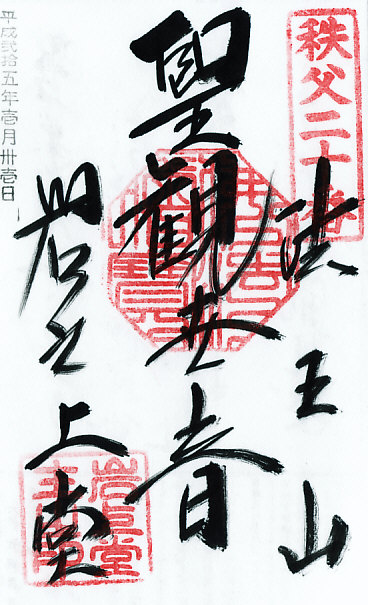 秩父二十番
法王山
聖観世音
岩之上堂
平成弐拾五年壱月卅壱日